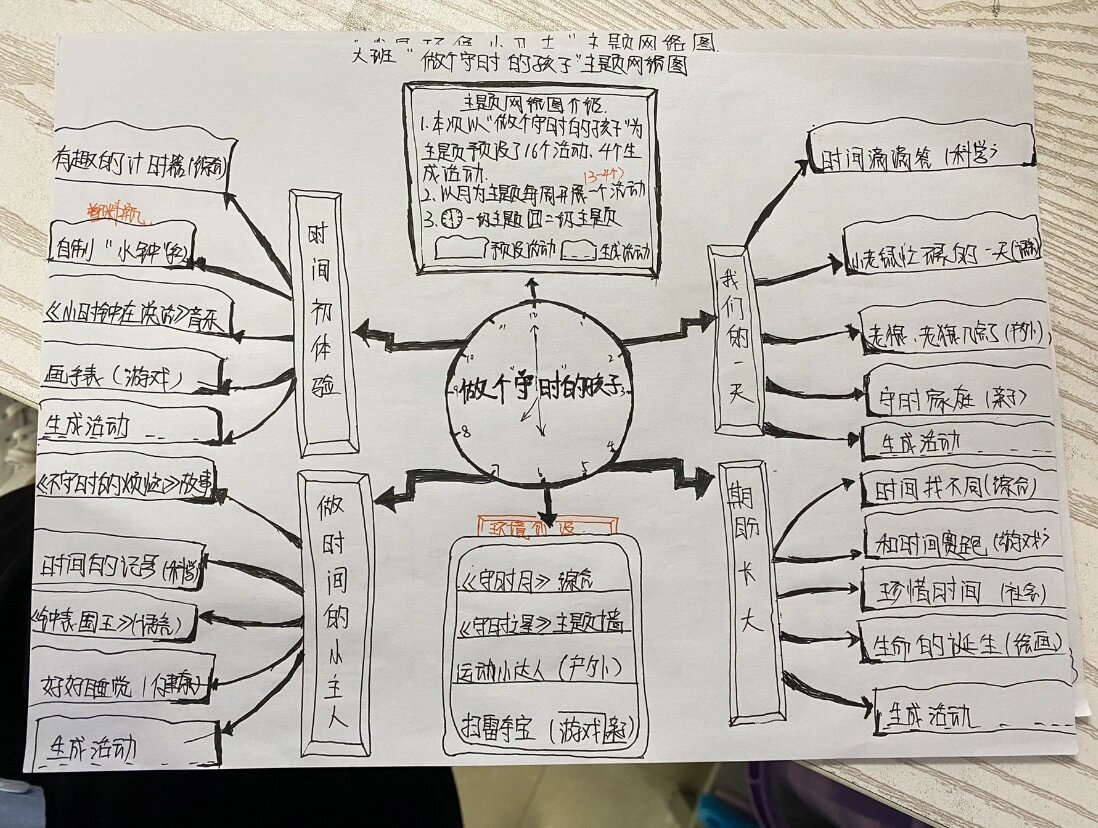 主题网络图
大班“做个守时的孩子”主题网络图
主题网络图介绍
1.本次以“做个守时的孩子”为
主题预设了16个活动、4个生
成活动.
(3-4个)
2.以月为主题每周开展一个活动
3. 一级主题 二级主题
预设活动 生成活动
时间初体验
有趣的计时器(综合)
自制“水钟”
《小闹钟在说话》音乐
画手表(游戏)
生成活动
做时间的小主人
《不守时的烦恼》故事
时间的记录(科学)
《钟表国王》(语言)
好好睡觉(健康)
生成活动
做个“守时”的孩子
2
3
4
5
6
7
8
9
10
11
我们的一天
时间滴滴答(科学)
小老鼠忙碌的一天
老狼、老狼几点了(户外)
守时家庭(亲子)
生成活动
期盼长大
时间找不同(综合)
和时间赛跑(游戏)
珍惜时间(社会)
生命的诞生(绘画)
生成活动
环境创设
《守时月》综合
《守时之星》主题墙
运动小达人(户外)
扫雷夺宝(游戏 亲子)